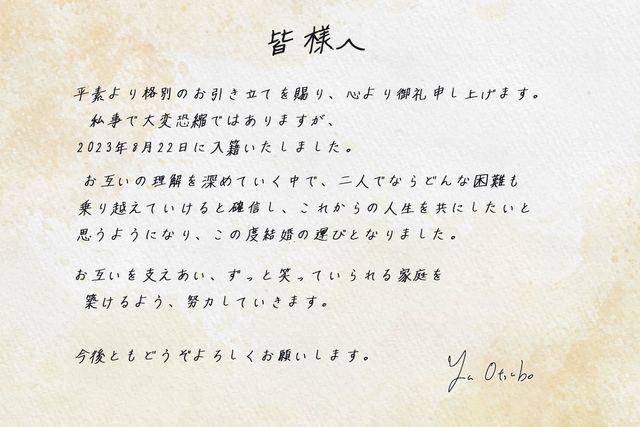 皆様へ
平素より格別のお引き立てを賜り、心より御礼申し上げます。
私事で大変恐縮ではありますが、
2023年8月22日に入籍いたしました。
お互いの理解を深めていく中で、二人でならどんな困難も
乗り越えていけると確信し、これからの人生を共にしたいと
思うようになり、この度結婚の運びとなりました。
お互いを支えあい、ずっと笑っていられる家庭を
築けるよう、努力していきます。
今後ともどうぞよろしくお願いします。
Yu Otsubo